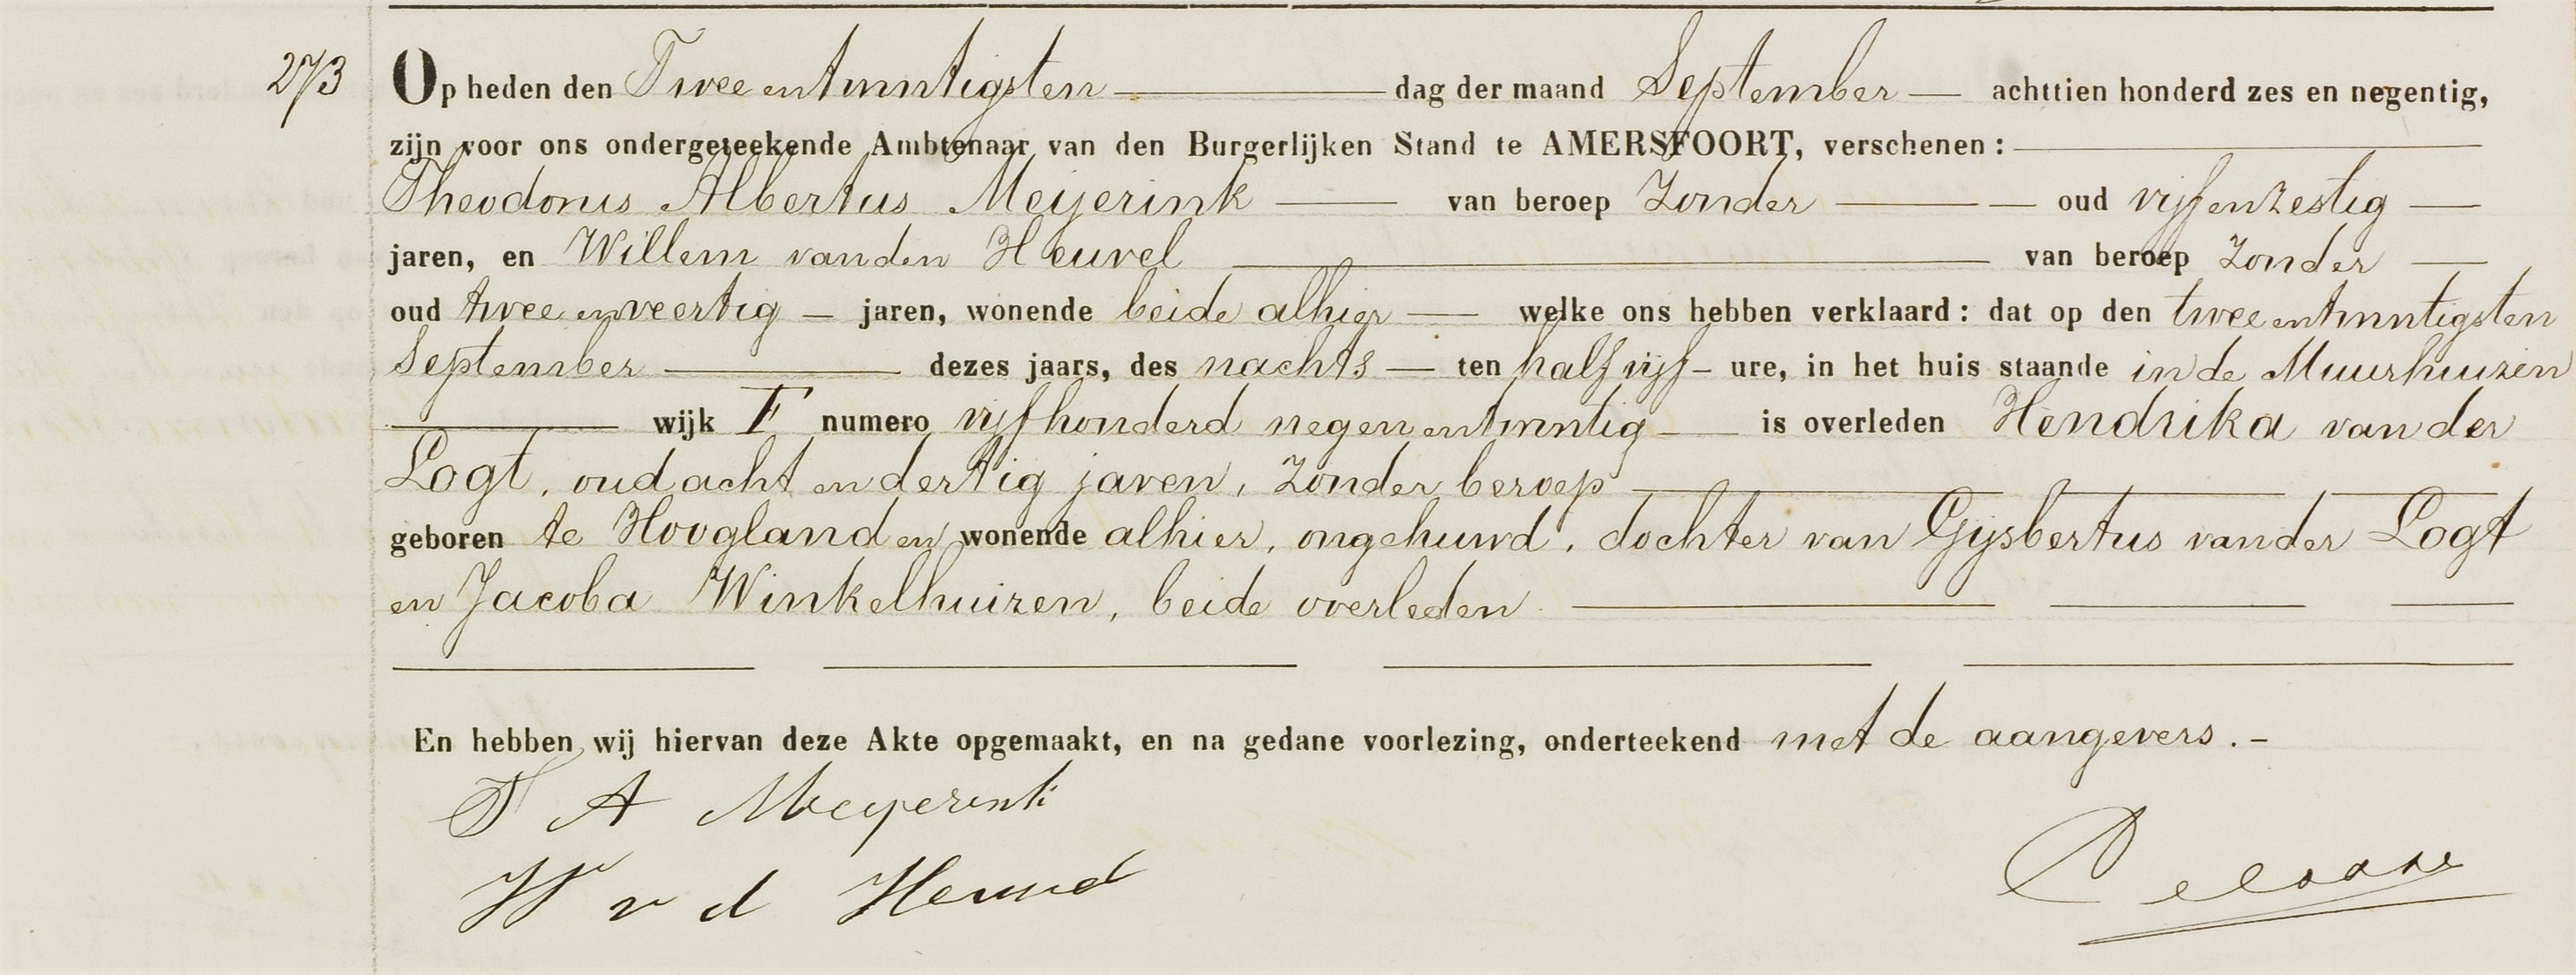 273
Op heden den Twee entwintigsten dag der maand September achttien honderd zes en negentig,
zijn voor ons ondergeteekende Ambtenaar van den Burgerlijken Stand te AMERSFOORT, verschenen :
Theodorus Albertus Meijerink van beroep Zonder oud vijf en zestig
jaren, en Willem van den Heuvel van beroep Zonder
oud twee en veertig jaren, wonende beide alhier welke ons hebben verklaard : dat op den twee entwintigsten
September dezes jaars, des nachts ten half vijf ure, in het huis staande in de Muurhuizen
wijk F numero vijfhonderd negen entwintig is overleden Hendrika van der
Logt, oud acht en dertig jaren, Zonder beroep
geboren te Hoogland en wonende alhier, ongehuwd, dochter van Gijsbertus van der Logt
en Jacoba Winkelhuizen, beide overleden.
En hebben wij hiervan deze Akte opgemaakt, en na gedane voorlezing, onderteekend met de aangevers.-
T A Meijerink
W v d Heuvel